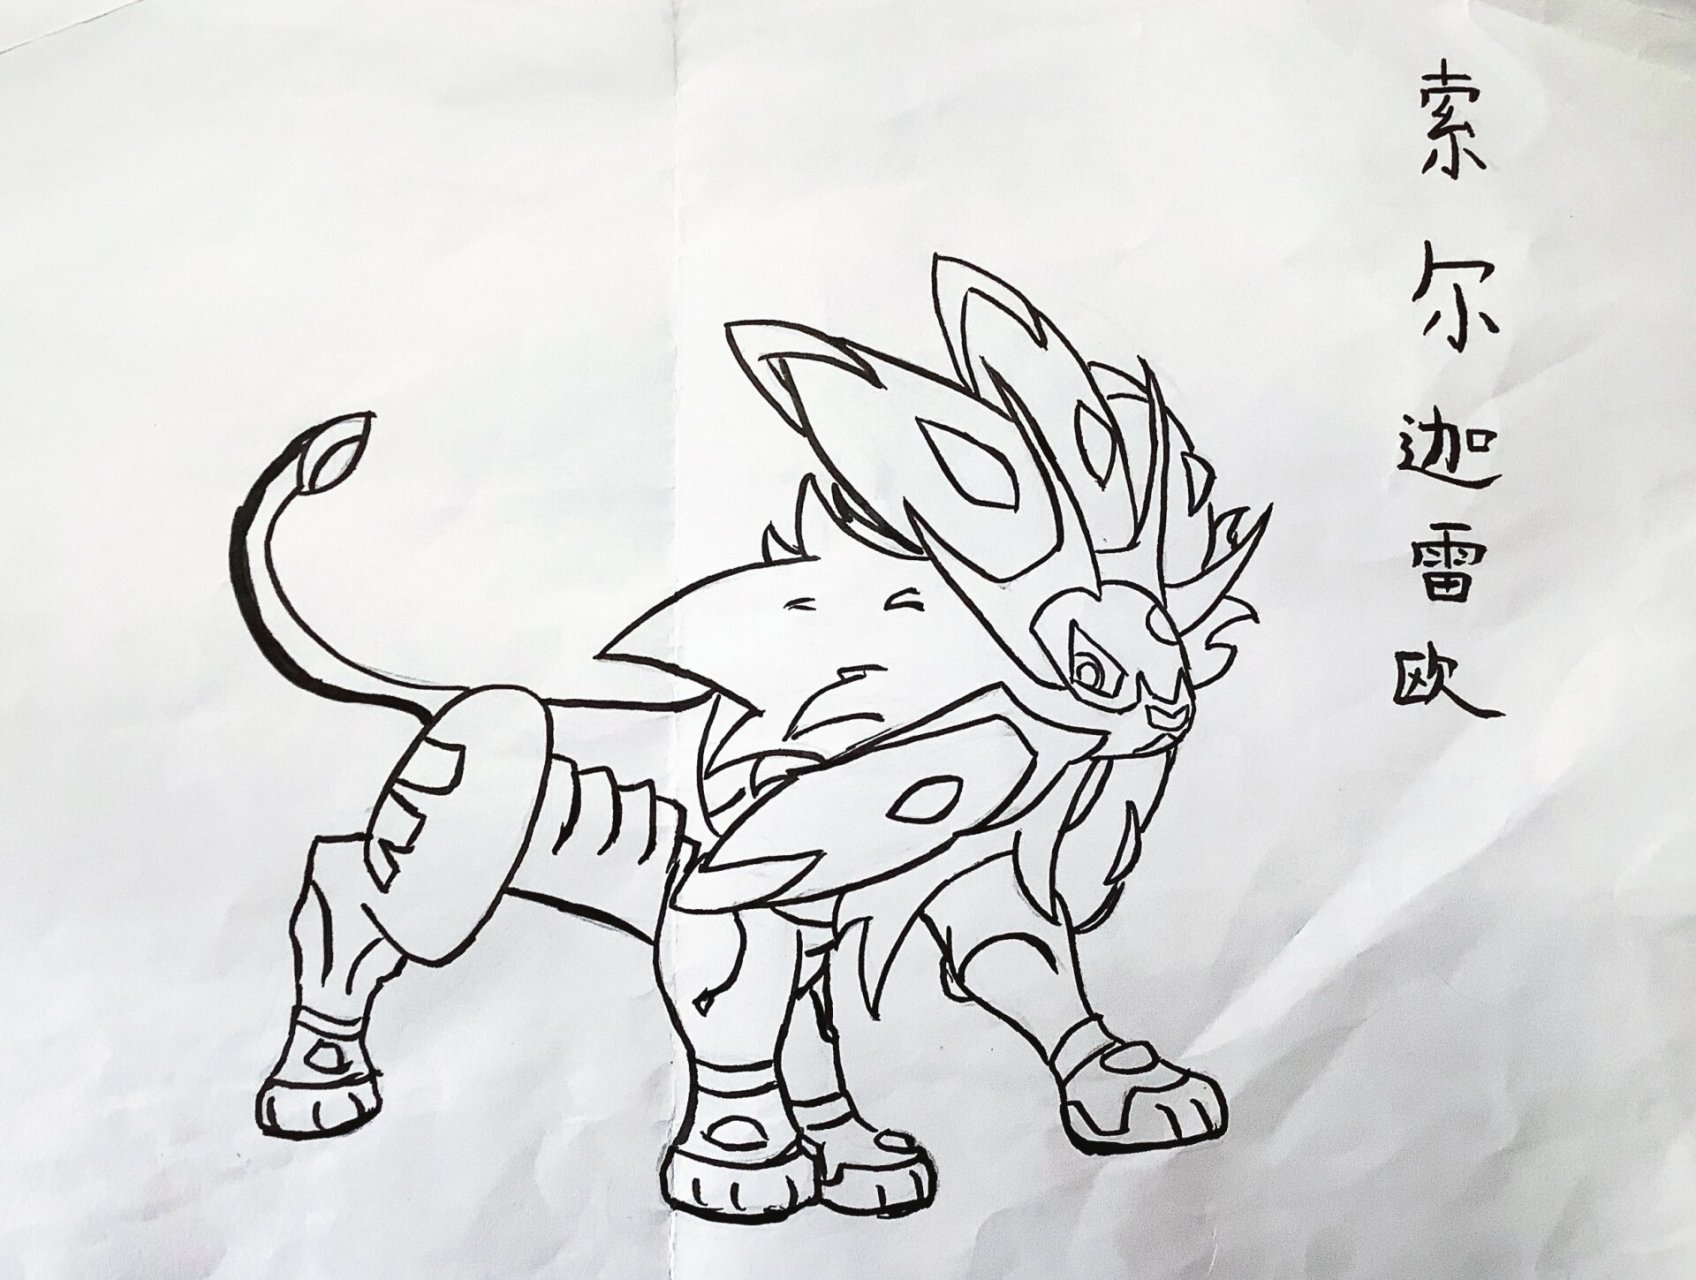 索尔迦雷欧